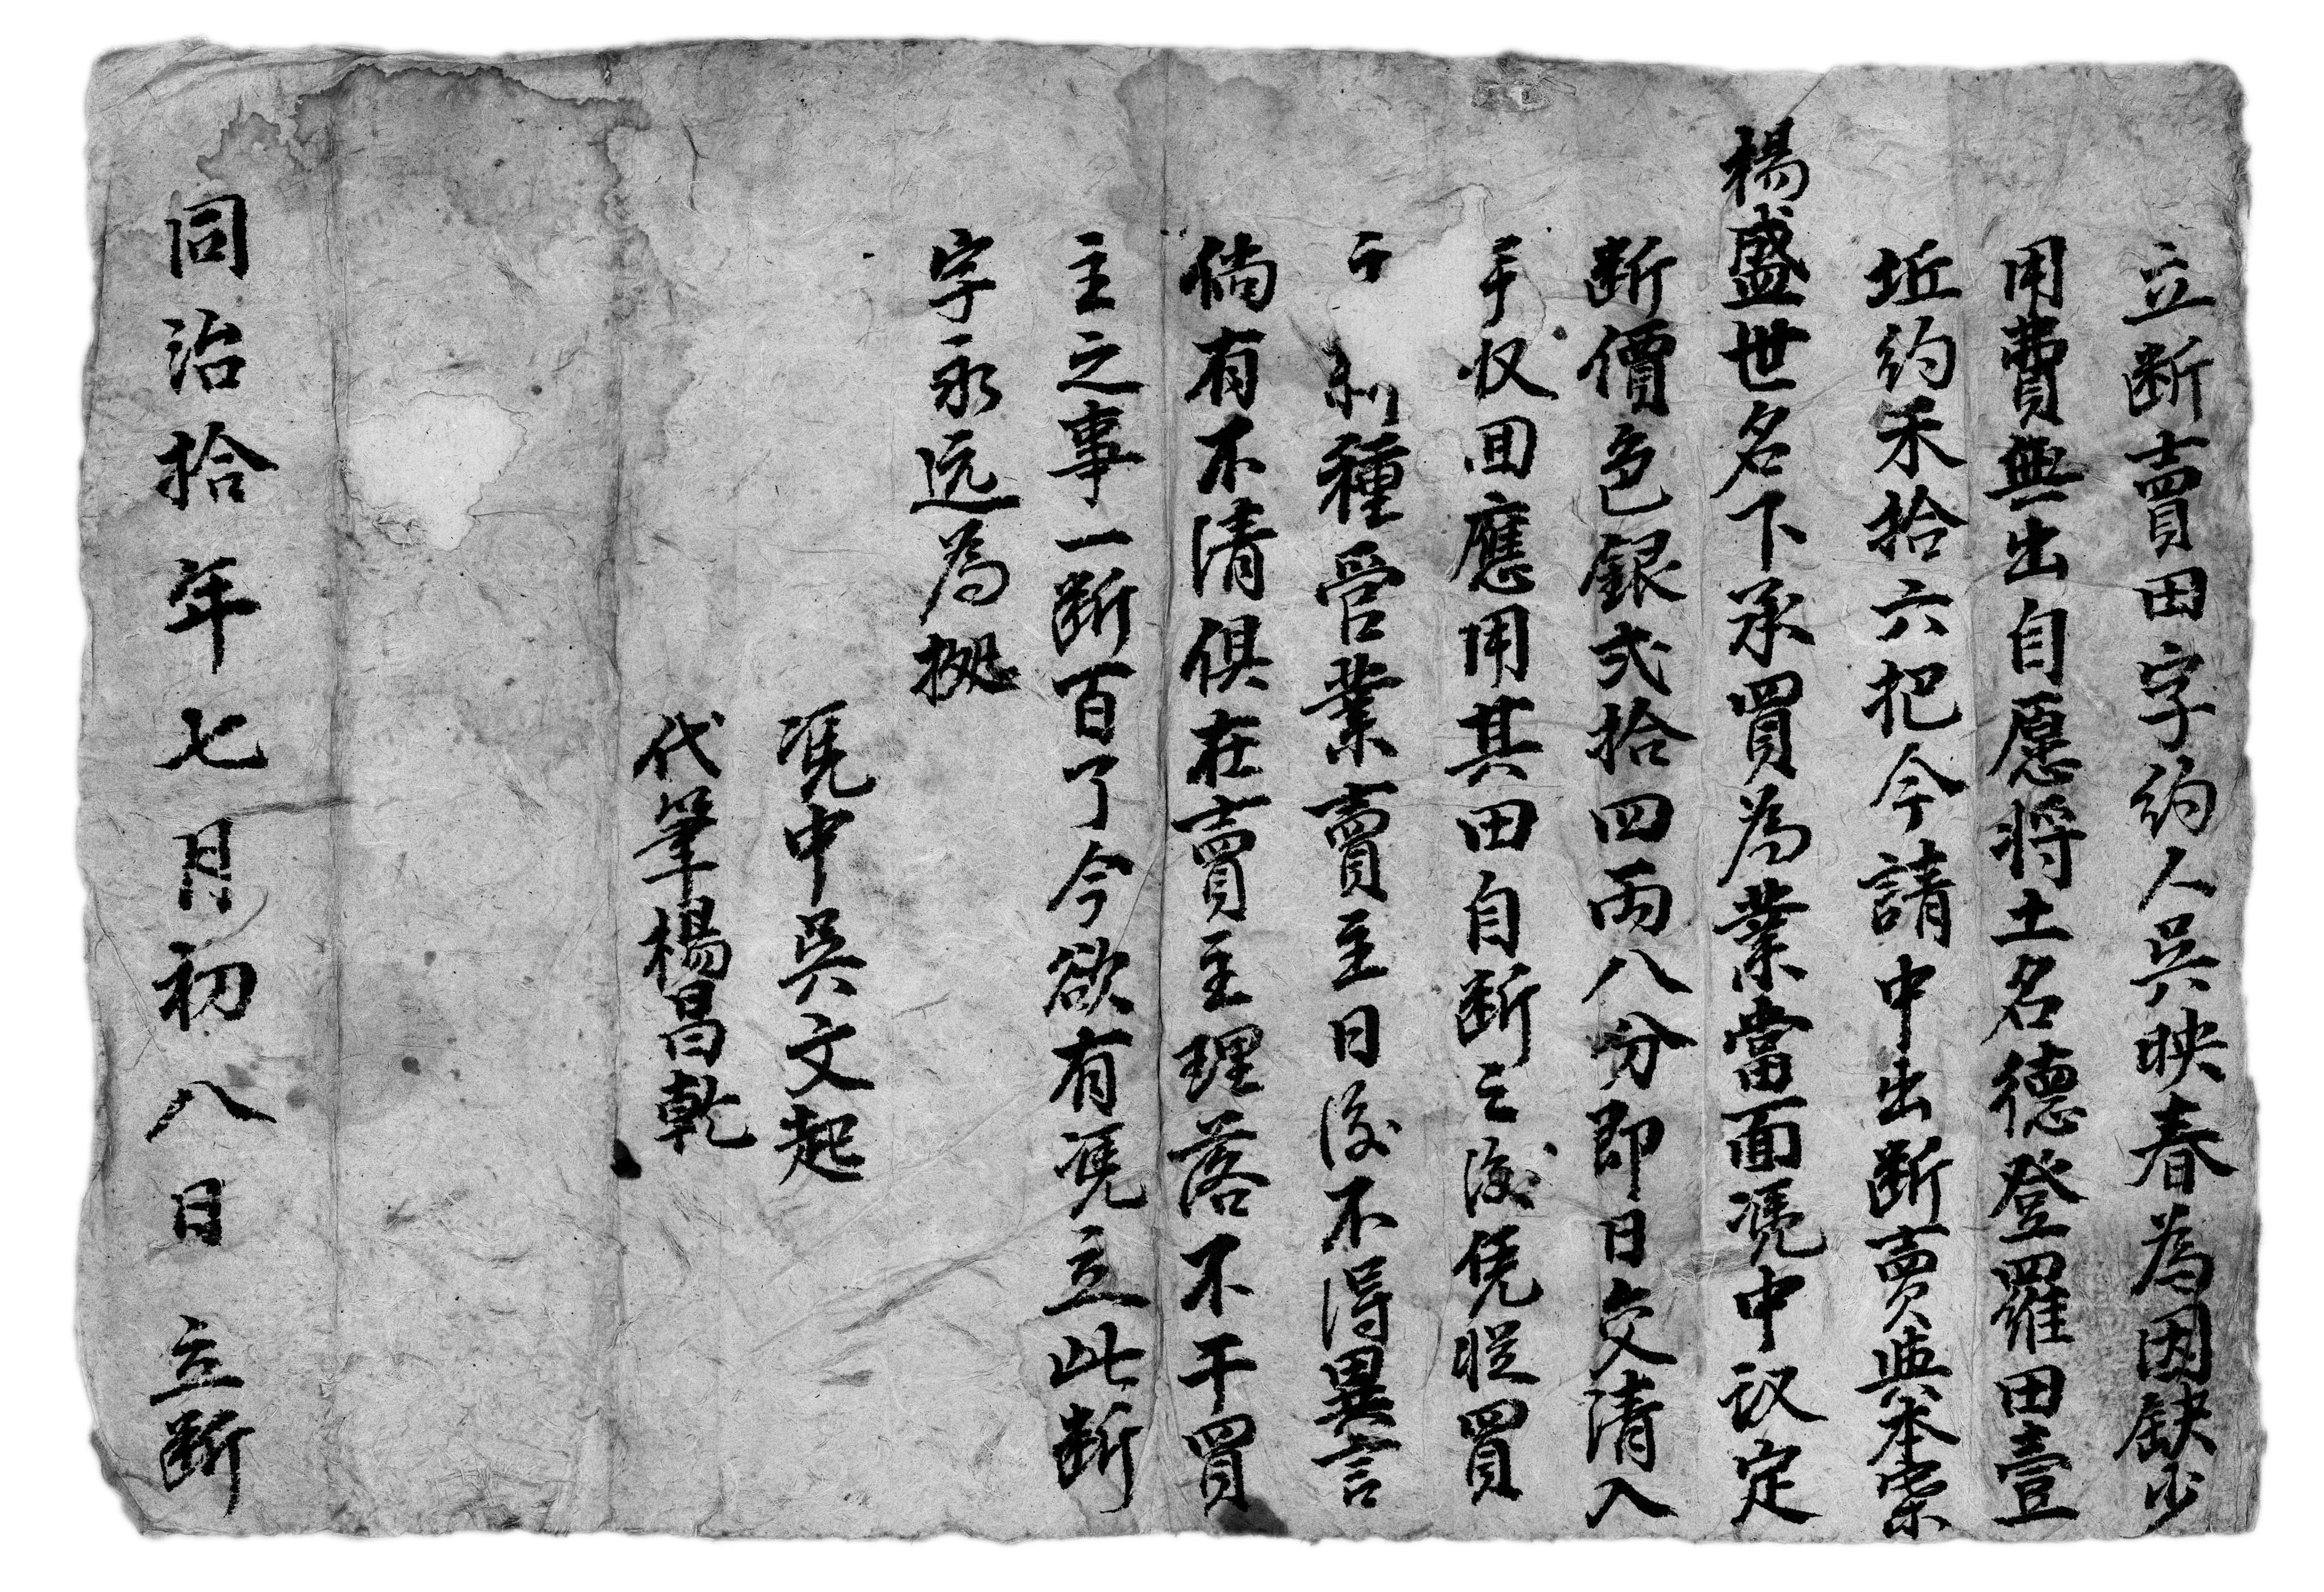 立断賣田字約人吳映春為因缺少
用費無出自愿將土名德登羅田壹
坵約禾拾六把今請中出断賣與本寨
楊盛世名下承買為業當面凴中议定
断價色銀弍拾四両八分即日交清入
手収囬應用其田自断之後凭從買
主 種管業賣主日後不得異言
倘有不清俱在賣主理落不干買
主之事一断百了今欲有凴立此断
字永远為拠
凴中吳文起
代筆楊昌乾
同治拾年七月初八日立断